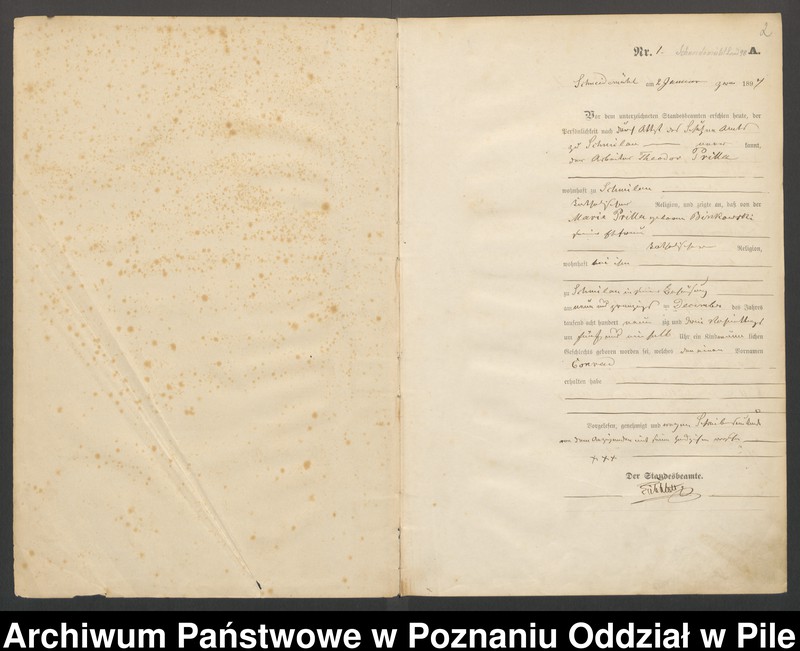 2
Nr. 1. A.
Schneidemühl am 2 Januar 189
Vor dem unterzeichneten Standesbeamten erschien heute, der
Persönlichkeit nach durch Attest des
zu Schmilau kannt,
der Arbeiter Theodor Prilla
wohnhaft zu Schmilau
katholischer Religion, und zeigte an, daß von der
Maria Prilla geborene Binkowski
seiner Ehefrau
katholischer Religion,
wohnhaft bei ihm
zu Schmilau in seiner Behausung
am neun und zwanzigsten December des Jahres
tausend acht hundert neun zig und drei Nachmittags
um fünf und ein halb Uhr ein Kind männlichen
Geschlechts geboren worden sei, welches den einen Vornamen
Conrad
erhalten habe
Vorgelesen, genehmigt und wegen
von dem Anzeigenden mit seinem Handzeichen
+++
Der Standesbeamte.
Archiwum Państwowe w Poznaniu Oddział w Pile